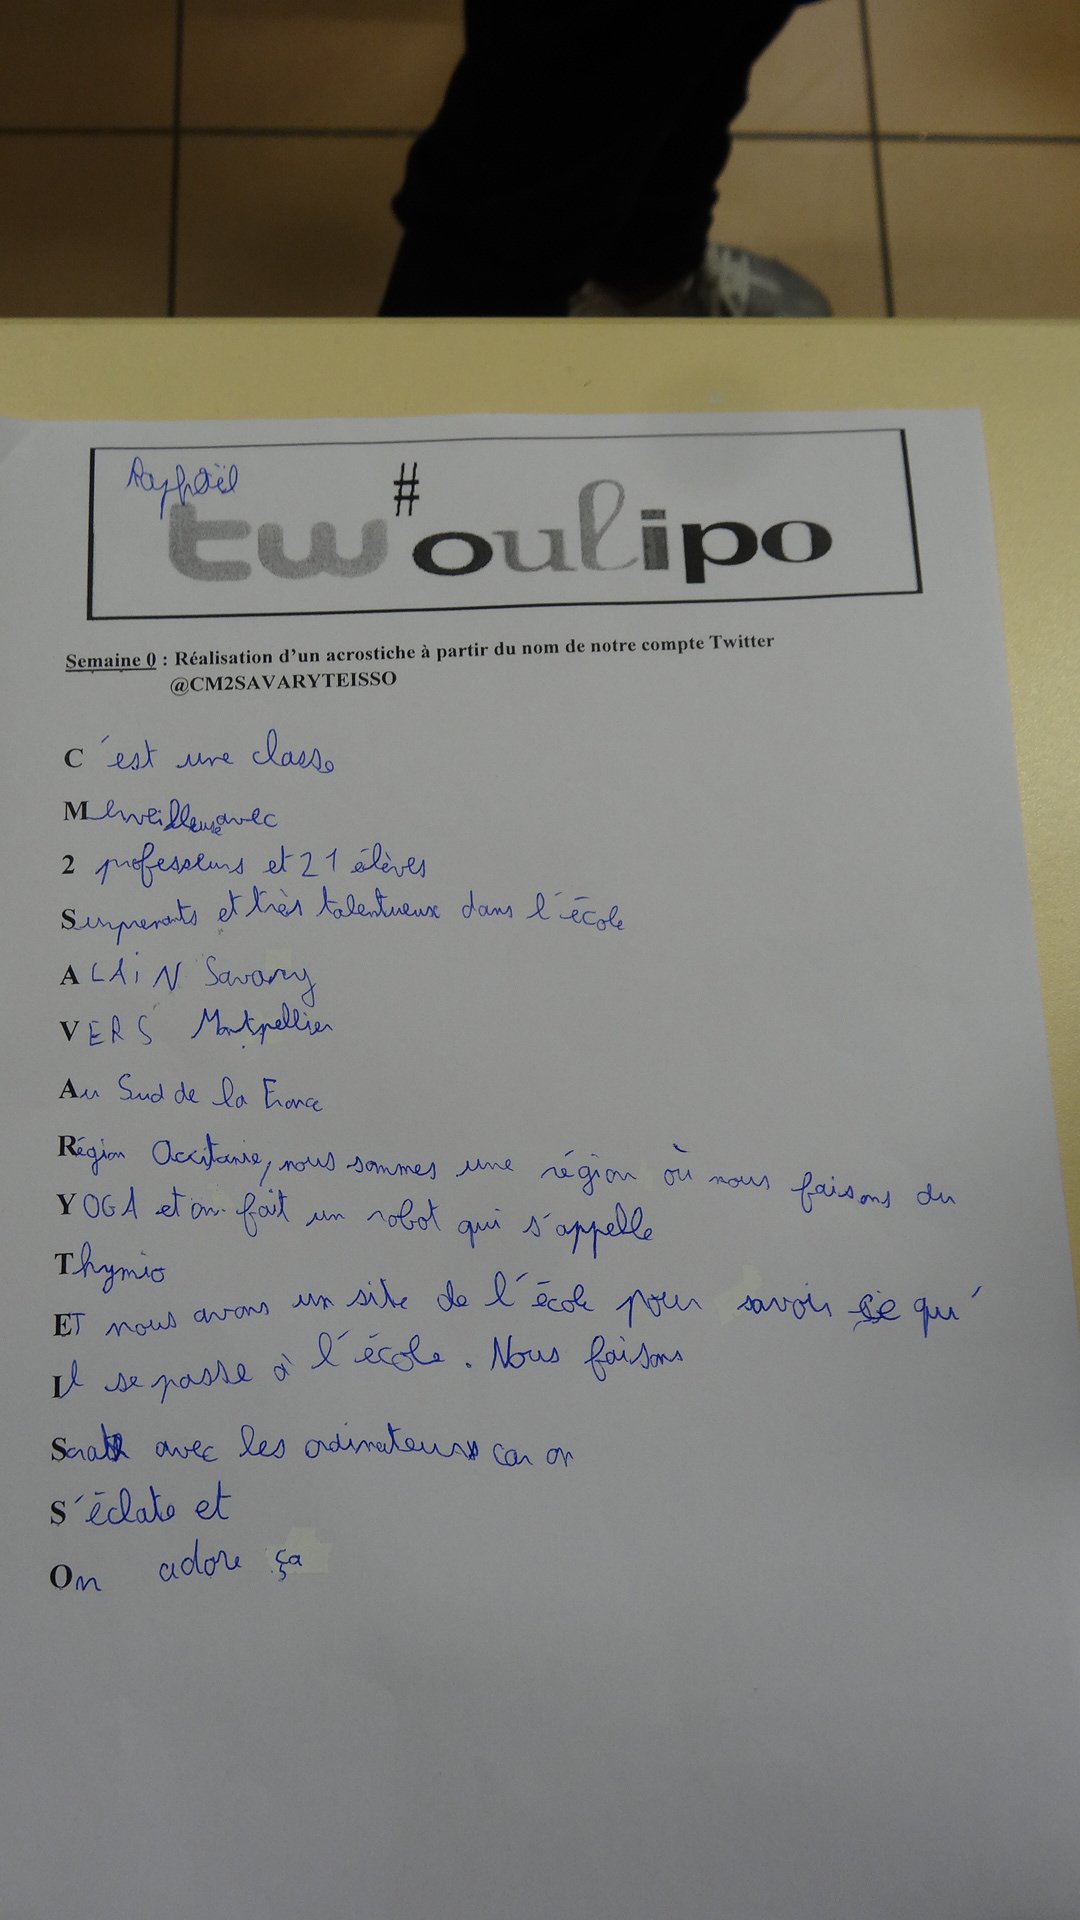 Raphaël
#
twoulipo
Semaine 0 : Réalisation d'un acrostiche à partir du nom de notre compte Twitter
@CM2SAVARYTEISSO
C'est une classe
Merveilleuse avec
2 professeurs et 21 élèves
Surprenants et très talentueux dans l'école
ALAiN Savary
VERS Montpellier
Au Sud de la France
Région Occitanie, nous sommes une région où nous faisons du
YOGA et on fait un robot qui s'appelle
Thymio
ET nous avons un site de l'école pour savoir ce qu'
Il se passe à l'école. Nous faisons
avec les ordinateurs car on
S'éclate et
On adore ça